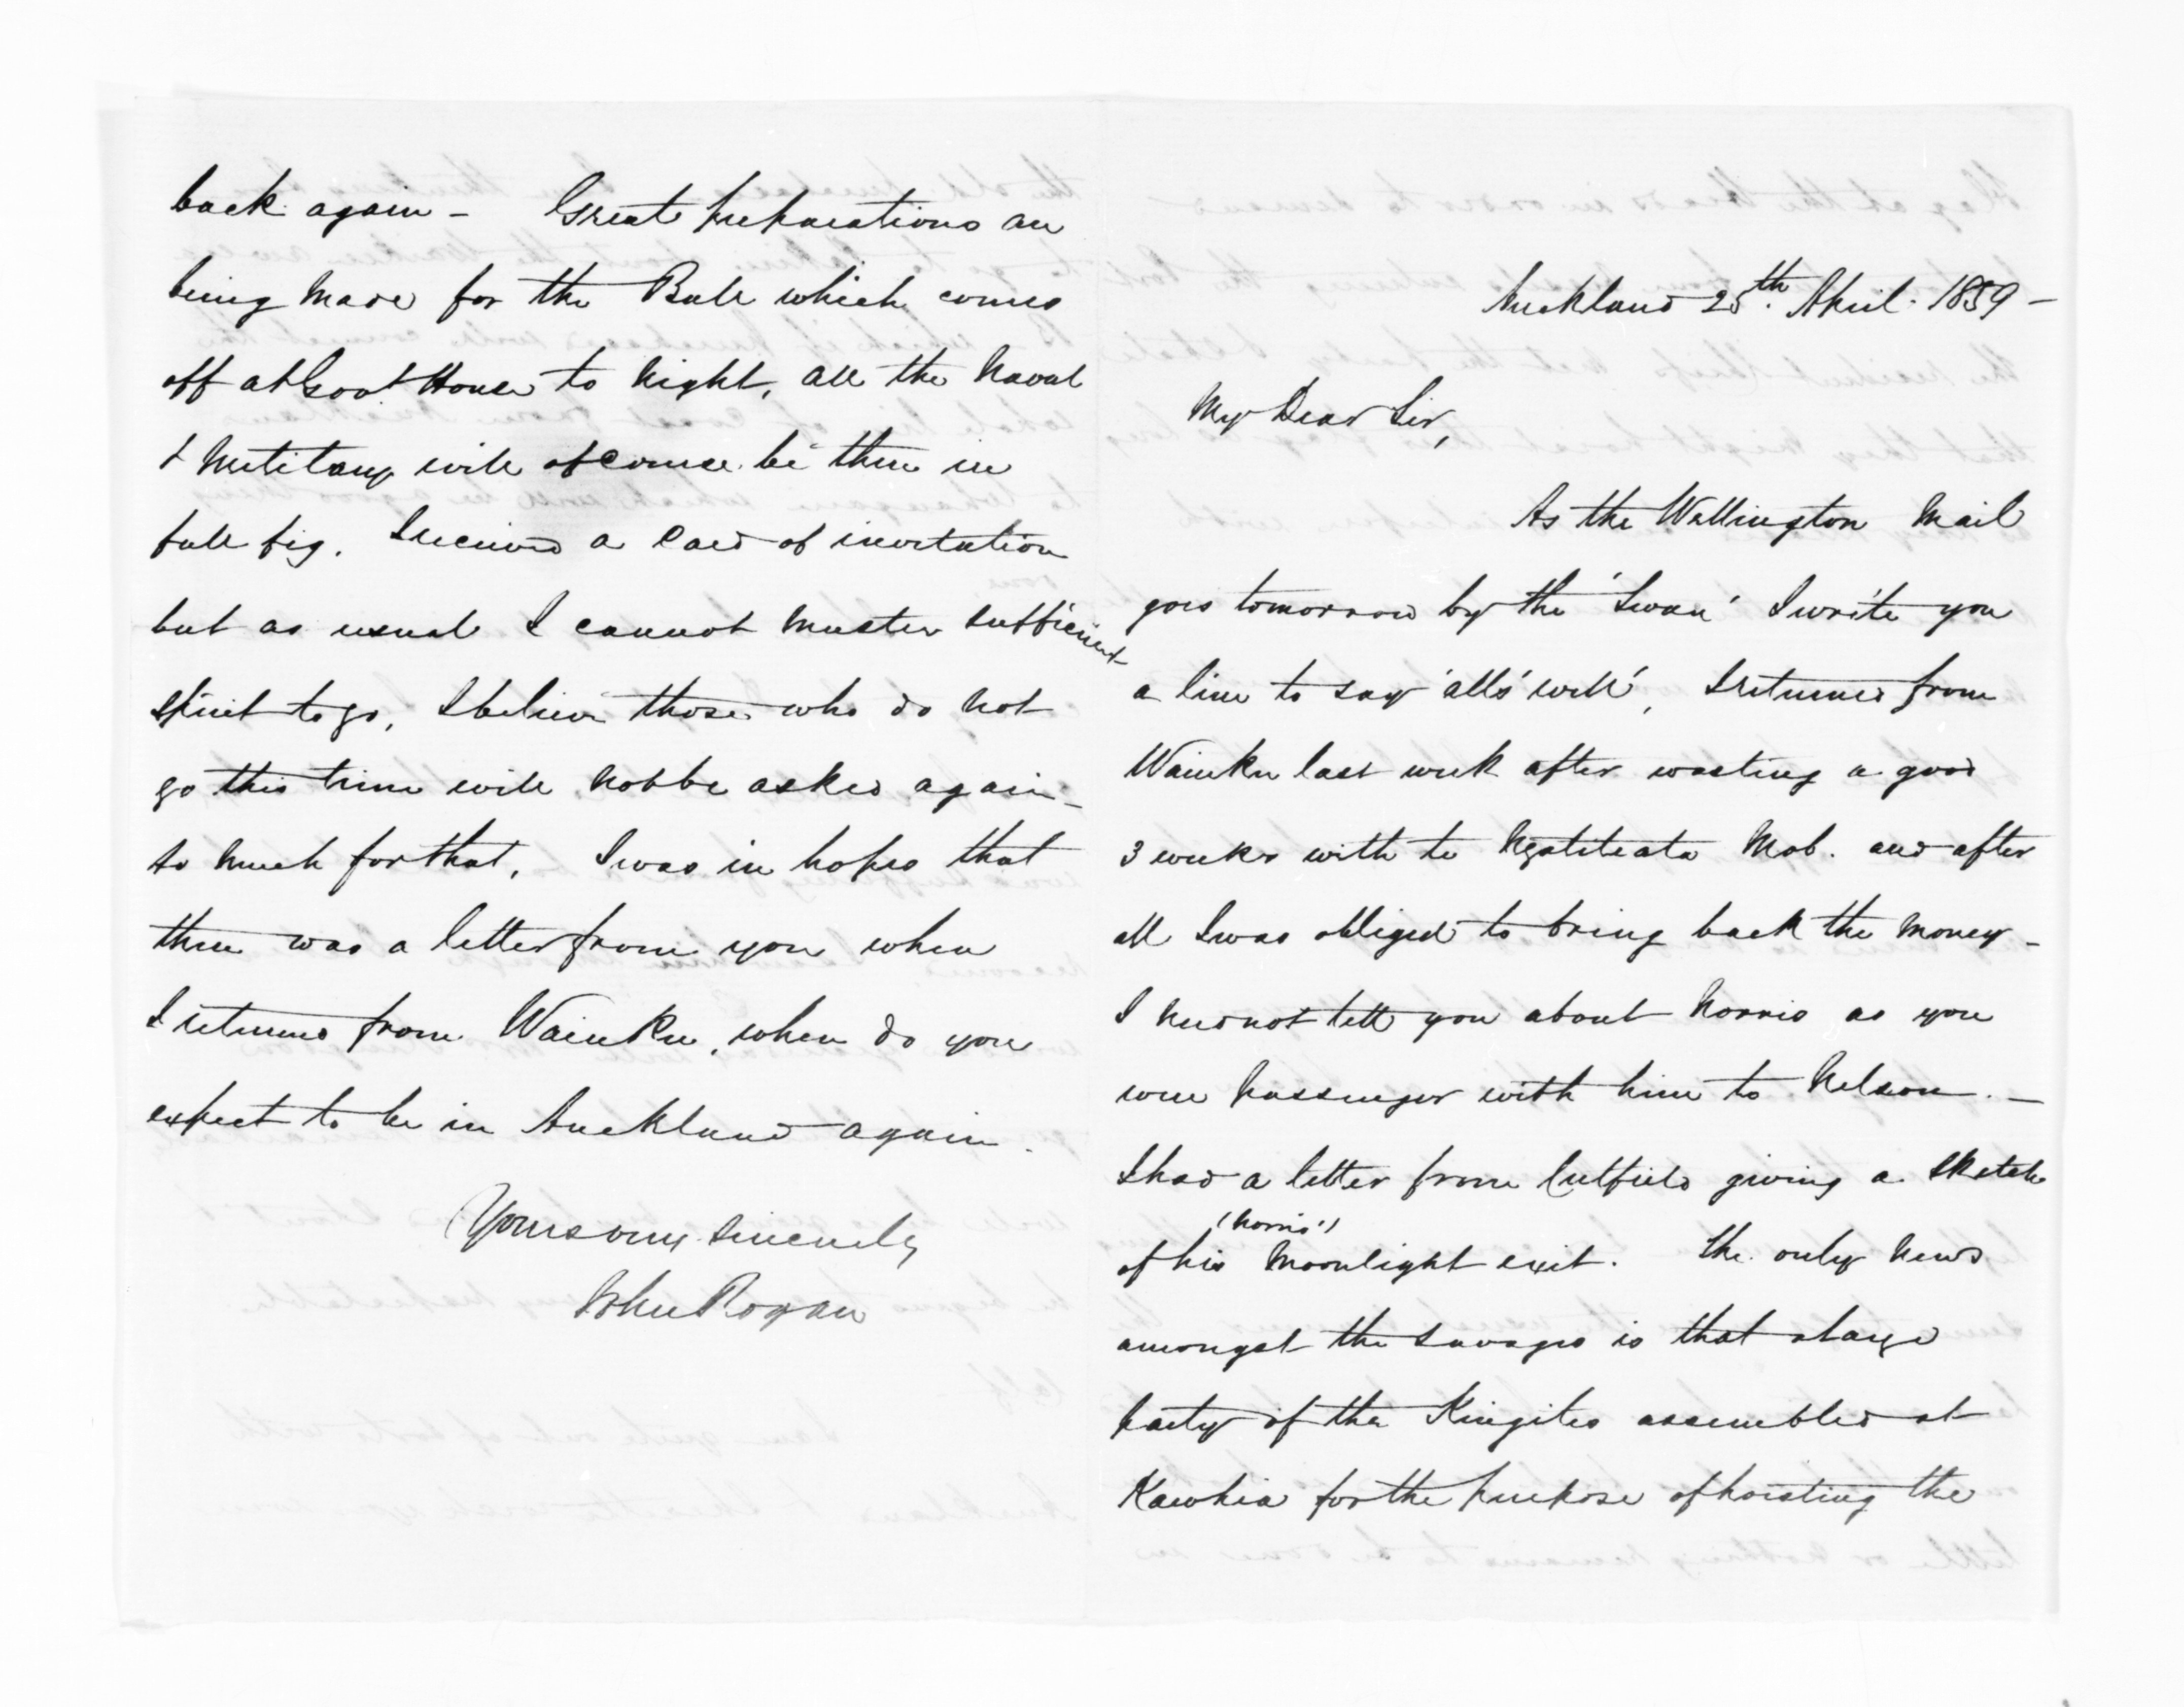 back again - Great preparations are
being made for the Ball which comes
off at Govt House to night, all the Naval
& Military will of course be there in
full fig. I received a Card of invitation
but as usual I cannot muster sufficient
spirit to go, I believe those who do not
go this time will not be asked again -
so much for that. I was in hopes that
there was a letter from you when
I returned from Waiuku, when do you
expect to be in Auckland again.
Yours very sincerely
John Rogan
Auckland 25th April 1859 -
My Dear Sir,
As the Wellington Mail
goes tomorrow by the 'Swan' I write you
a line to say 'all's well', I returned from
Waiuku last week after wasting a good
3 weeks with te Ngatiteata Mob. and after
all I was obliged to bring back the money -
I need not tell you about Norris as you
were passenger with him to Nelson. -
I had a letter from Cutfield giving a sketch
(Norris')
of his moonlight exit. The only news
amongst the savages is that a large
party of the Kingites assembled at
Kawhia for the purpose of hoisting the